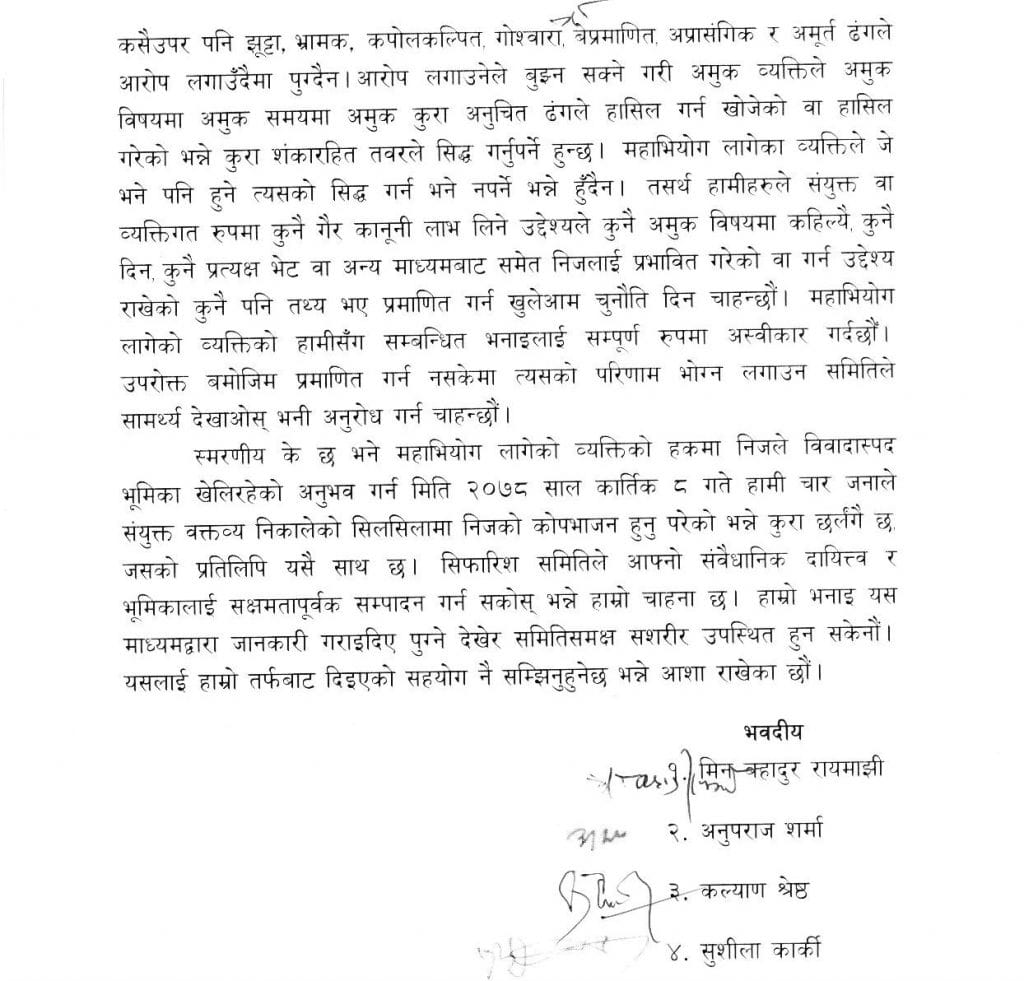 कसैउपर पनि झूट्टा, भ्रामक, कपोलकल्पित, गोश्वारा, बेप्रमाणित, अप्रासंगिक र अमूर्त ढंगले
आरोप लगाउँदैमा पुग्दैन। आरोप लगाउनेले बुझ्न सक्ने गरी अमुक व्यक्तिले अमुक
विषयमा अमुक समयमा अमुक कुरा अनुचित ढंगले हासिल गर्न खोजेको वा हासिल
गरेको भन्ने कुरा शंकारहित तवरले सिद्ध गर्नुपर्ने हुन्छ। महाभियोग लागेका व्यक्तिले जे
भने पनि हुने त्यसको सिद्ध गर्न भने नपर्ने भन्ने हुँदैन। तसर्थ हामीहरुले संयुक्त वा
व्यक्तिगत रुपमा कुनै गैर कानूनी लाभ लिने उद्देश्यले कुनै अमुक विषयमा कहिल्यै, कुनै
दिन, कुनै प्रत्यक्ष भेट वा अन्य माध्यमबाट समेत निजलाई प्रभावित गरेको वा गर्न उद्देश्य
राखेको कुनै पनि तथ्य भए प्रमाणित गर्न खुलेआम चुनौति दिन चाहन्छौं। महाभियोग
लागेको व्यक्तिको हामीसँग सम्बन्धित भनाइलाई सम्पूर्ण रुपमा अस्वीकार गर्दछौं।
उपरोक्त बमोजिम प्रमाणित गर्न नसकेमा त्यसको परिणाम भोग्न लगाउन समितिले
सामर्थ्य देखाओस् भनी अनुरोध गर्न चाहन्छौं।
स्मरणीय के छ भने महाभियोग लागेको व्यक्तिको हकमा निजले विवादास्पद
भूमिका खेलिरहेको अनुभव गर्न मिति २०७८ साल कार्तिक ८ गते हामी चार जनाले
संयुक्त वक्तव्य निकालेको सिलसिलामा निजको कोपभाजन हुनु परेको भन्ने कुरा छर्लंगै छ,
जसको प्रतिलिपि यसै साथ छ। सिफारिश समितिले आफ्नो संवैधानिक दायित्त्व र
भूमिकालाई सक्षमतापूर्वक सम्पादन गर्न सकोस् भन्ने हाम्रो चाहना छ। हाम्रो भनाइ यस
माध्यमद्वारा जानकारी गराइदिए पुग्ने देखेर समितिसमक्ष सशरीर उपस्थित हुन सकेनौं।
यसलाई हाम्रो तर्फबाट दिइएको सहयोग नै सम्झिनुहुनेछ भन्ने आशा राखेका छौं।
भवदीय
१. मिन बहादुर रायमाझी
२. अनुपराज शर्मा
३. कल्याण श्रेष्ठ
४. सुशीला कार्की